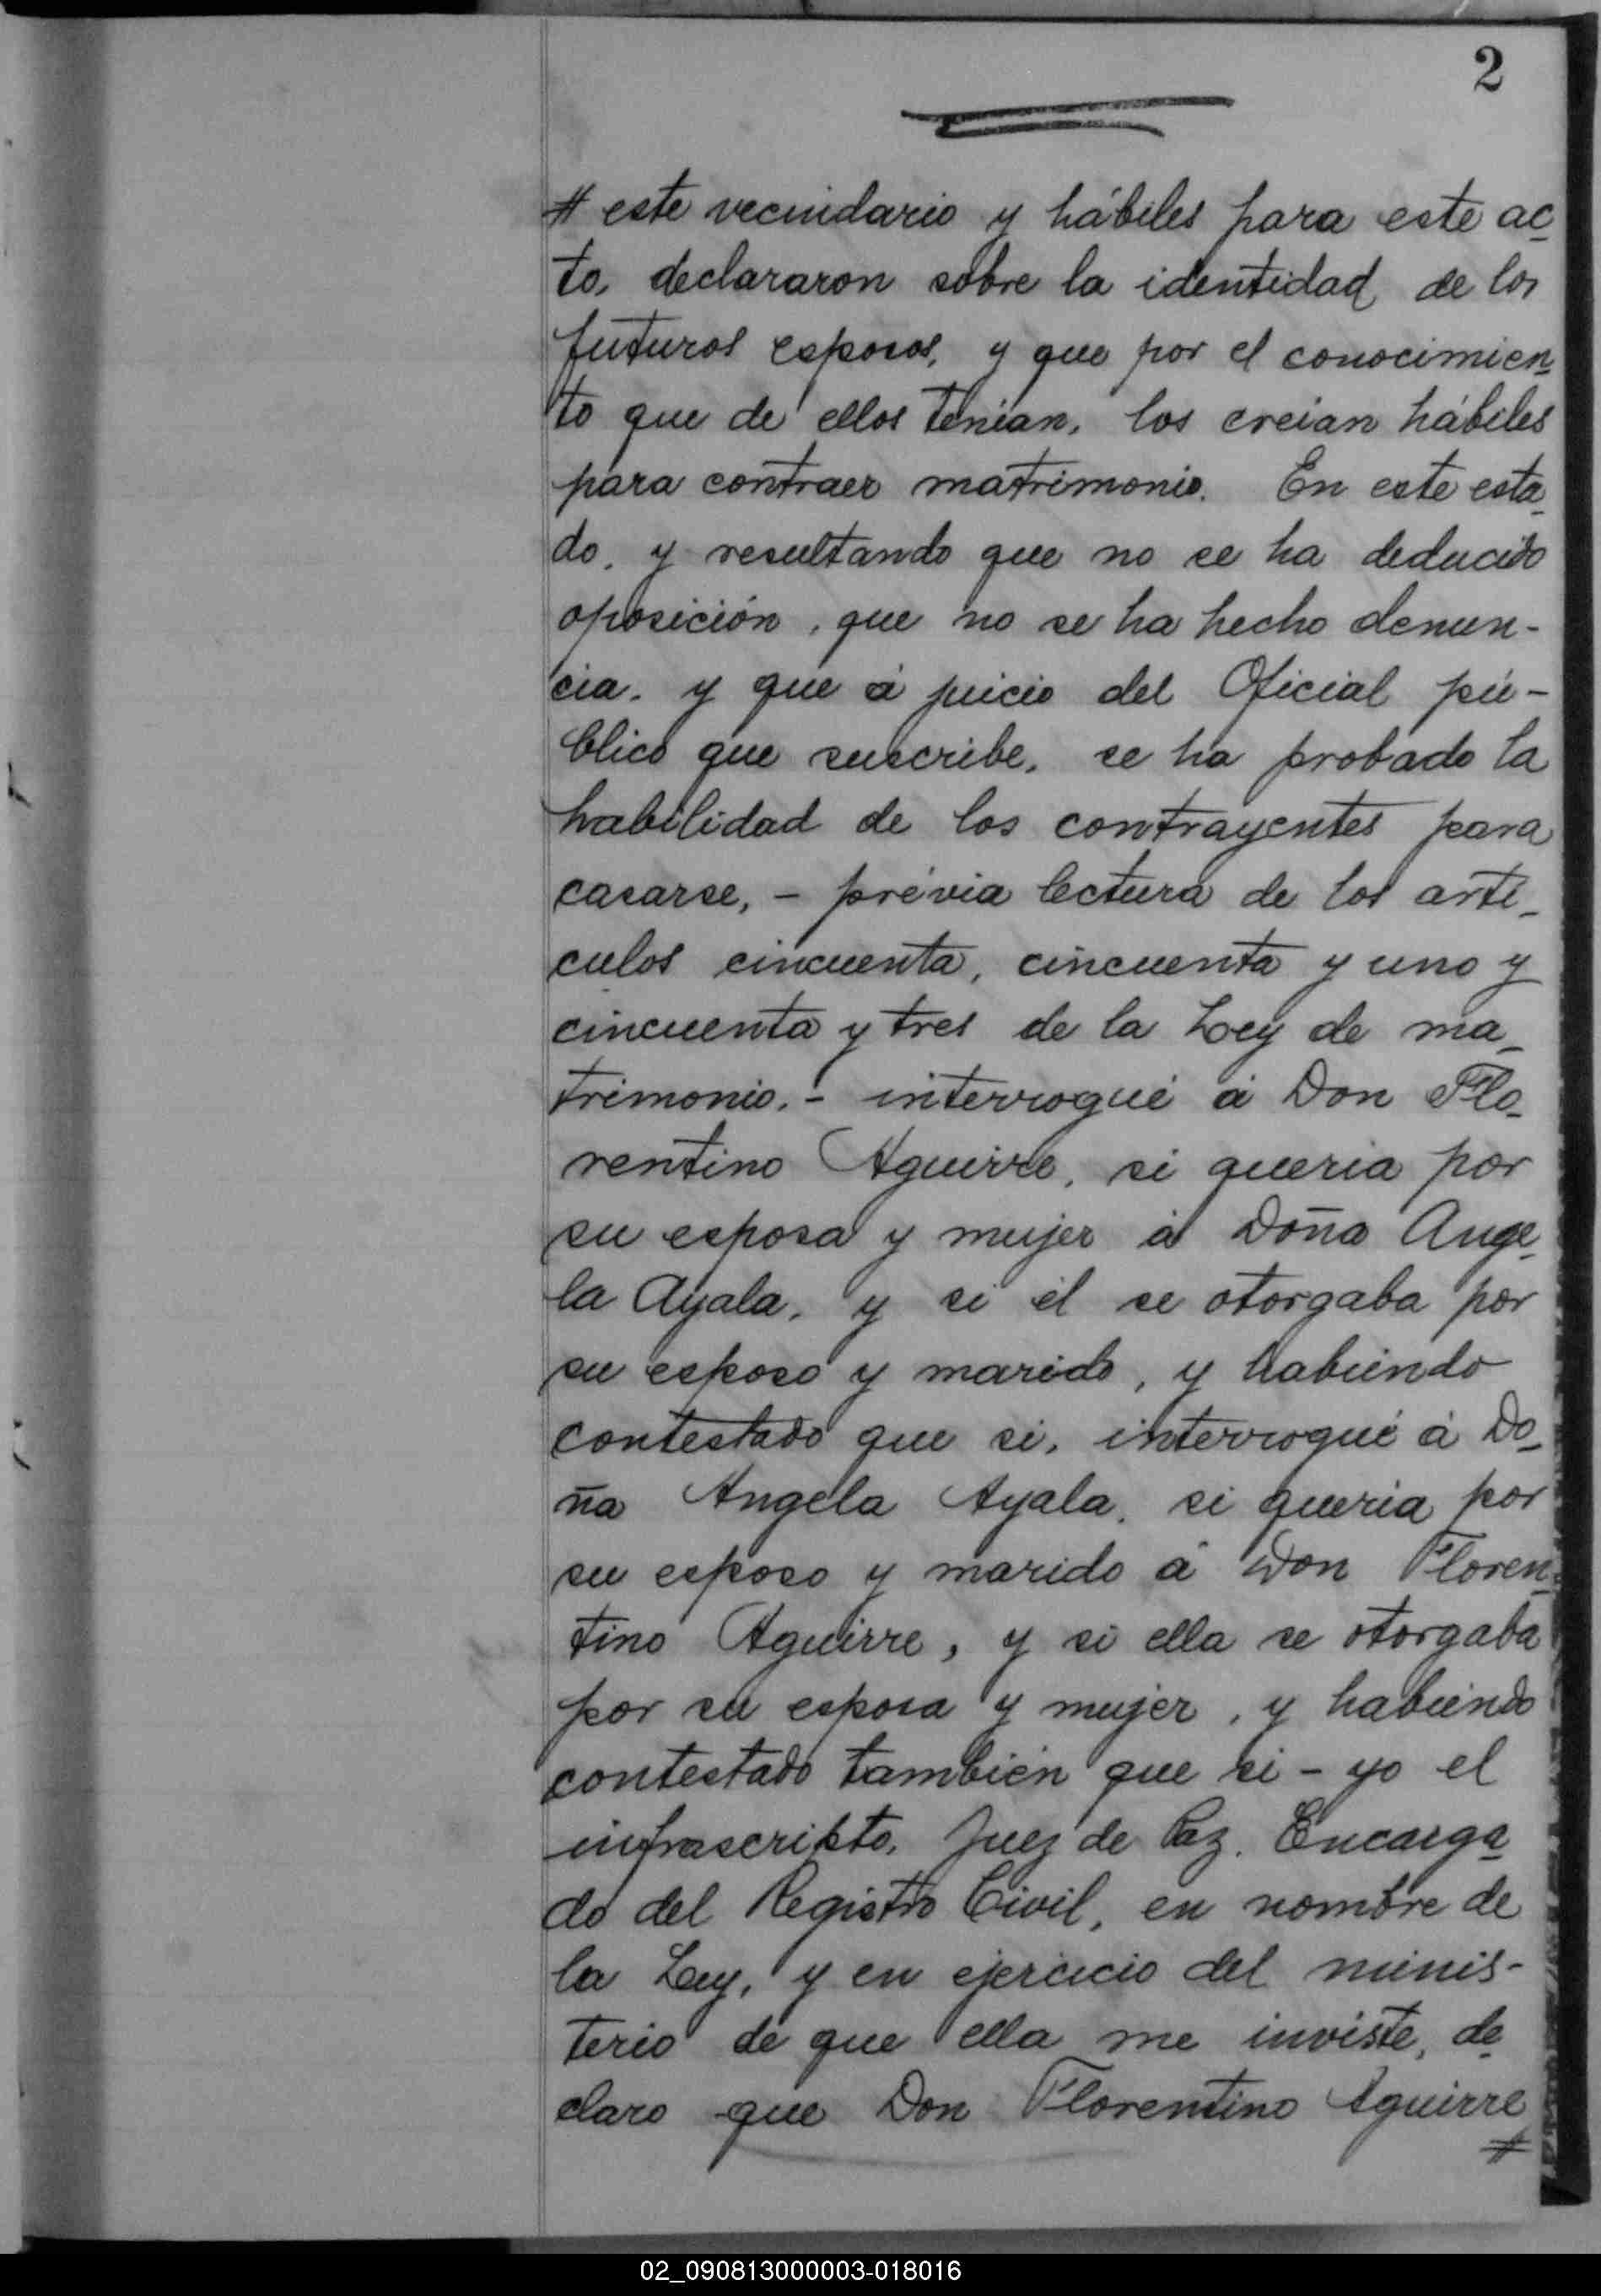 2
# este vecindario y hábiles para este ac-
to, declararon sobre la identidad de los
futuros esposos, y que por el conocimien-
to que de ellos tenian, los creian hábiles
para contraer matrimonio. En este esta-
do, y resultando que no se ha deducido
oposición, que no se ha hecho denun-
cia, y que á juicio del Oficial pú-
blico que suscribe, se ha probado la
habilidad de los contrayentes para
casarse, - prévia lectura de los artí-
culos cincuenta, cincuenta y uno y
cincuenta y tres de la Ley de ma-
trimonio, - interrogué á Don Flo-
rentino Aguirre, si queria por
su esposa y mujer á Doña Ange-
la Ayala, y si él se otorgaba por
su esposo y marido, y habiendo
contestado que si, interrogué á Do-
ña Angela Ayala, si queria por
su esposo y marido á Don Floren-
tino Aguirre, y si ella se otorgaba
por su esposa y mujer, y habiendo
contestado también que si - yo el
infrascripto, Juez de Paz, Encarga-
do del Registro Civil, en nombre de
la Ley, y en ejercicio del minis-
terio de que ella me inviste, de-
claro que Don Florentino Aguirre
#
02_090813000003-018016